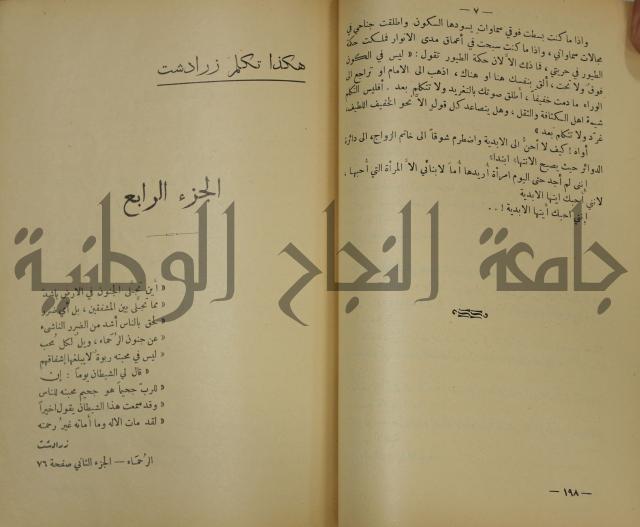 — ٧ —
واذا ما كنت بسطت فوقي سماوات يسودها السكون واطلقت جناحي في
مجالات سماواتي، واذا ما كنت سبحت في أعماق مدى الانوار فملكت حكمة
الطيور في حريتي، فما ذلك الاّ لان حكمة الطيور تقول: « ليس في الكون
فوق ولا تحت، ألق بنفسك هنا او هناك، اذهب الى الامام او تراجع الى
الوراء ما دمت خفيفاً، أطلق صوتك بالتغريد ولا تتكلم بعد. أفليس التكلم
شيمة اهل الكثافة والثقل، وهل يتصاعد كل قول الاّ نحو الخفيف اللطيف،
غرّد ولا تتكلم بعد »
أواه! كيف لا أحنّ الى الابدية واضطرم شوقاً الى خاتم الزواج، الى دائرة
الدوائر حيث يصبح الانتهاء ابتداء؟
إنني لم أجد حتى اليوم امرأة أريدها أماً لابنائي الاّ المرأة التي أحبها،
لانني أحبك ايتها الابدية
إنني أحبك أيتها الابدية!..
— ١٩٨ —
هكذا تكلم زرادشت
الجزء الرابع
« أين تجلى الجنون في الارض بأشد
« مما تجلى بين المشفقين، بل أي ضرر
« لحق بالناس أشد من الضرر الناشىء
« عن جنون الرحماء، ويل لكل محب
« ليس في محبته ربوة لا يبلغها إشفاقهم
« قال لي الشيطان يوماً: إن
« للربّ جحيماً هو جحيم محبته للناس
« وقد سمعت هذا الشيطان يقول اخيراً
« لقد مات الاله وما أماته غير رحمته
زرادشت
الرحماء — الجزء الثاني صفحة ٧٦
جامعة النجاح الوطنية